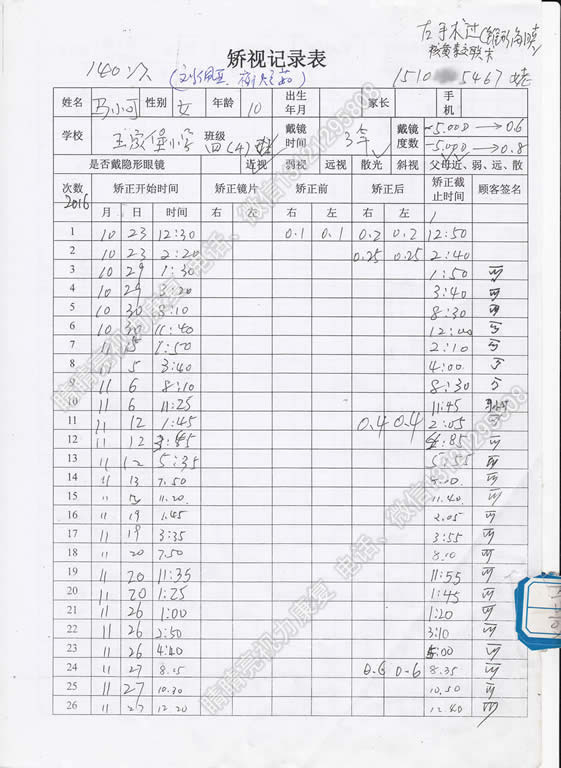 矫视记录表
140次
左手术过
1510 5467
姓名 马小可 性别 女 年龄 10 出生年月 家长 手机
学校 王家堡小学 班级 四(4) 戴镜时间 3年 戴镜度数 -5.00D→0.6 -5.00D→0.8
是否戴隐形眼镜 近视 弱视 远视 散光 斜视 父母近、弱、远、散
次数 矫正开始时间 矫正镜片 矫正前 矫正后 矫正截止时间 顾客签名
2016 月 日 时间 右 左 右 左 右 左
1 10 23 12:30 0.1 0.1 0.2 0.2 12:50
2 10 23 2:20 0.25 0.25 2:40
3 10 29 1:30 1:50 可
4 10 29 3:20 3:40 可
5 10 30 8:10 8:30 可
6 10 30 11:40 12:00
7 5 1:50 2:10
8 5 3:40 4:00
9 11 6 8:10 8:30
10 11 6 11:25 11:45
11 11 12 1:45 0.4 0.4 2:05
12 11 12
13 11 12 5:35 5:55 可
14 11 13 7.50 可
15 11 11.20 11.40 可
16 11 19 1.45 2.05 可
17 11 19 3:35 3:55 可
18 11 20 7.50 8.10 可
19 11 20 11:35 11:55 可
20 11 20 1:25 1:45 可
21 11 26 1:00 1:20 可
22 11 26 2:50 3:10 可
23 11 26 4:40 5:00 可
24 11 27 8.15 0.6 0.6 8.35 可
25 11 27 10.30 10.50 可
26 11 27 12.20 12.40 可
晴晴亮视力康复 电话、微信